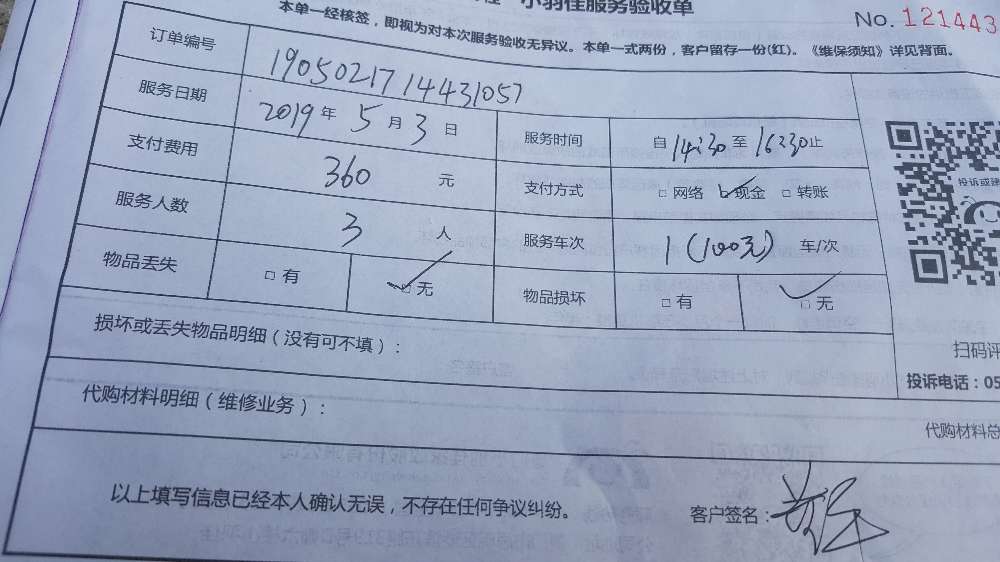 小羽佳服务验收单
No. 121443
本单一经核签，即视为对本次服务验收无异议。本单一式两份，客户留存一份(红)。《维保须知》详见背面。
订单编号 1905021714431057
服务日期 2019 年 5 月 3 日 服务时间 自 14:30 至 16:30 止
支付费用 360 元 支付方式 □ 网络 ☑ 现金 □ 转账
服务人数 3 人 服务车次 1(100元) 车/次
物品丢失 □ 有 ☑ 无 物品损坏 □ 有 ☑ 无
投诉或建
扫码评
损坏或丢失物品明细（没有可不填）：
投诉电话：05
代购材料明细（维修业务）：
代购材料总
以上填写信息已经本人确认无误，不存在任何争议纠纷。 客户签名：